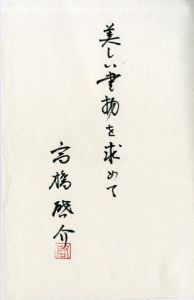 美しい書物を求めて
高橋啓介